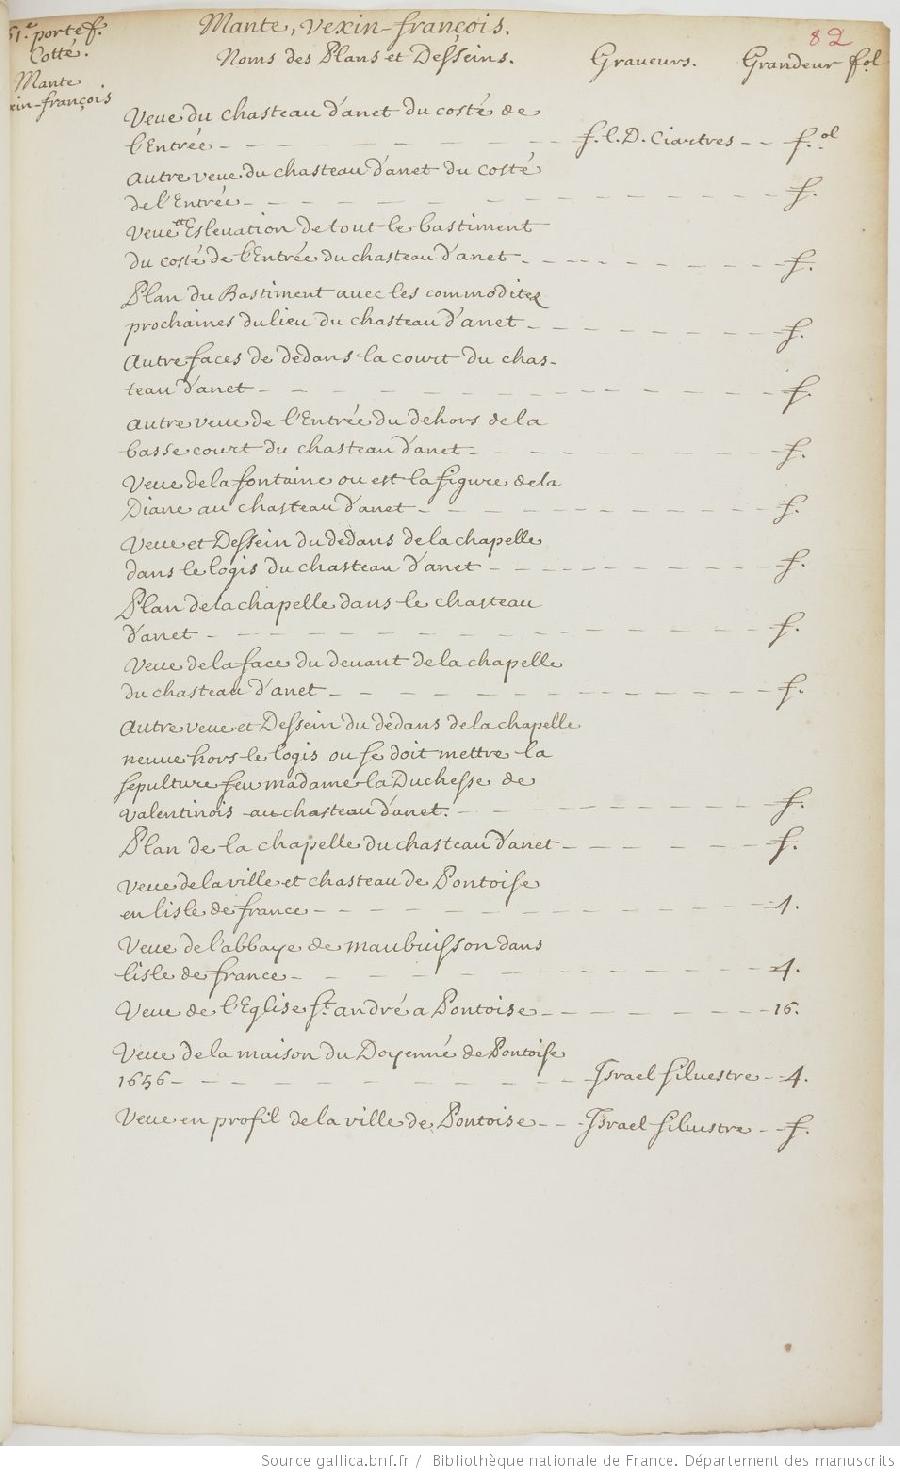 51.e portef.
Cotté.
Mante
xin-françois
Mante, Vexin-françois.
82
Noms des Plans et Desseins. Graueurs. Grandeur fol
Veue du chasteau d'anet du costé de
l'Entrée - - - f. l. D. Ciartres - - f.ol
autre veue du chasteau d'anet du costé
de l'Entrée - - - f.
Veue et Eslevation de tout le bastiment
du costé de l'Entrée du chasteau d'anet - - - f.
Plan du Bastiment avec les commoditez
prochaines du lieu du chasteau d'anet - - - f.
Autre faces de dedans la court du chas-
teau d'anet - - - f.
autre veue de l'Entrée du dehors de la
basse court du chasteau d'anet - - - f.
Veue de la fontaine ou est la figure de la
Diane au chasteau d'anet - - - f.
Veue et Dessein du dedans de la chapelle
dans le logis du chasteau d'anet - - - f.
Plan de la chapelle dans le chasteau
d'anet - - - f.
Veue de la face du devant de la chapelle
du chasteau d'anet - - - f.
autre veue et Dessein du dedans de la chapelle
neuve hors le logis ou se doit mettre la
sepulture feu madame la Duchesse de
valentinois au chasteau d'anet. - - - f.
Plan de la chapelle du chasteau d'anet - - - f.
Veue de la ville et chasteau de Pontoise
en lisle de france - - - 4.
Veue de l'abbaye de maubuisson dans
lisle de france - - - 4.
Veue de l'Eglise St. andré a Pontoise - - - 16.
Veue de la maison du Doyenné de Pontoise
1656 - - - Israel silvestre - - 4.
Veue en profil de la ville de Pontoise - - - Israel siluestre - - f.
Source gallica.bnf.fr / Bibliothèque nationale de France. Département des manuscrits